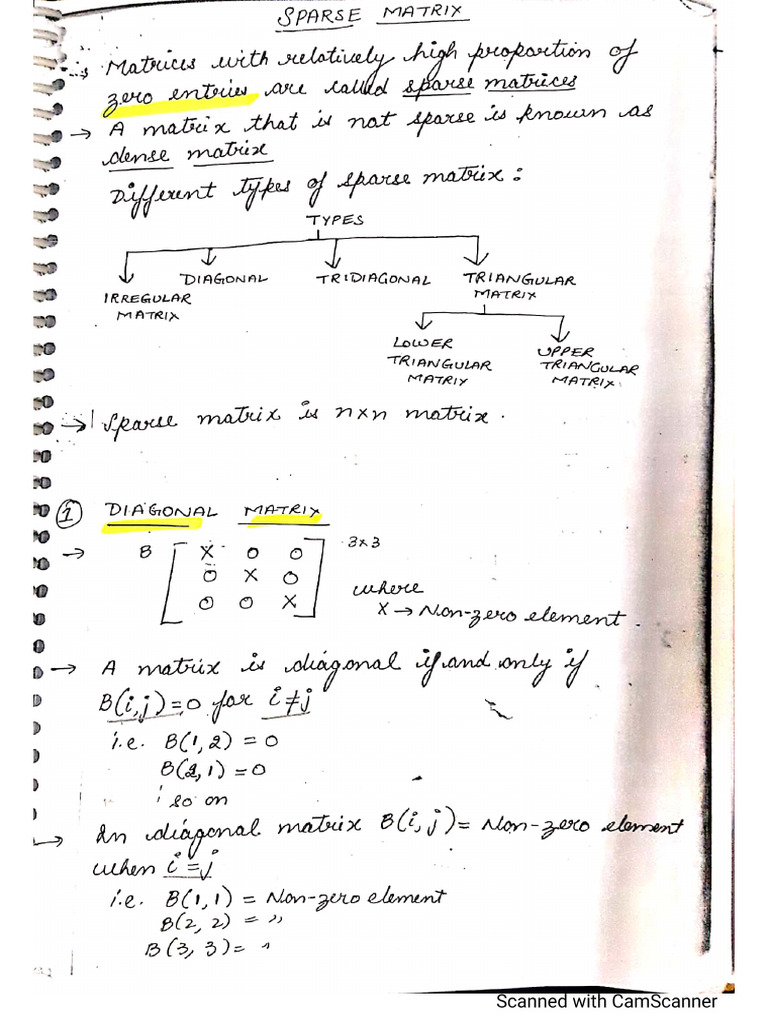 SPARSE MATRIX
→ Matrices with relatively high proportion of
zero entries are called sparse matrices
→ A matrix that is not sparse is known as
dense matrix
Different types of sparse matrix :
TYPES
IRREGULAR MATRIX
DIAGONAL
TRIDIAGONAL
TRIANGULAR MATRIX
LOWER TRIANGULAR MATRIX
UPPER TRIANGULAR MATRIX
→ Sparse matrix is n×n matrix.
① DIAGONAL MATRIX
→ B [ X 0 0 ] 3×3
0 X 0
0 0 X
where
X → Non-zero element.
→ A matrix is diagonal if and only if
B(i,j)=0 for i≠j
i.e. B(1,2) = 0
B(2,1) = 0
so on
→ In diagonal matrix B(i,j) = Non-zero element
when i=j
i.e. B(1,1) = Non-zero element
B(2,2) = 〃
B(3,3) = 〃
Scanned with CamScanner